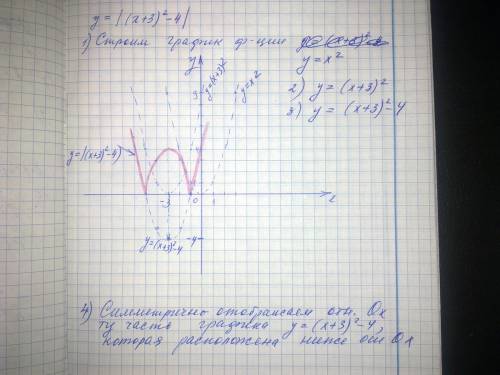 y = |(x+3)² - 4|
1) Строим график ф-ции
y = x²
2) y = (x+3)²
3) y = (x+3)² - 4
y
y=(x+3)²
y=x²
9
y=|(x+3)²-4|
-3
0
1
x
-4
y=(x+3)²-4
4) Симметрично отображаем отн. Ox
ту часть графика y = (x+3)² - 4,
которая расположена ниже оси Ox